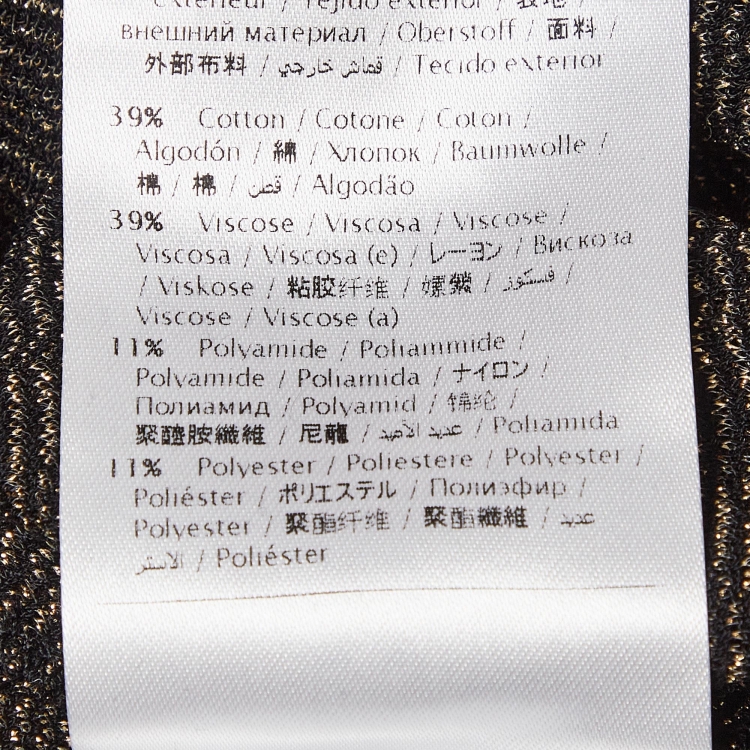 extérieur / Tejido exterior / 表地 /
внешний материал / Oberstoff / 面料 /
外部布料 / قماش خارجي / Tecido exterior
39% Cotton / Cotone / Coton /
Algodón / 綿 / Хлопок / Baumwolle /
棉 / 棉 / قطن / Algodão
39% Viscose / Viscosa / Viscose /
Viscosa / Viscosa (e) / レーヨン / Вискоза
/ Viskose / 粘胶纤维 / 嫘縈 / فسكوز /
Viscose / Viscose (a)
11% Polyamide / Poliammide /
Polyamide / Poliamida / ナイロン /
Полиамид / Polyamid / 锦纶 /
聚醯胺纖維 / 尼龍 / عديد الأميد / Poliamida
11% Polyester / Poliestere / Polyester /
Poliéster / ポリエステル / Полиэфир /
Polyester / 聚酯纤维 / 聚酯纖維 / عديد
الاستر / Poliéster